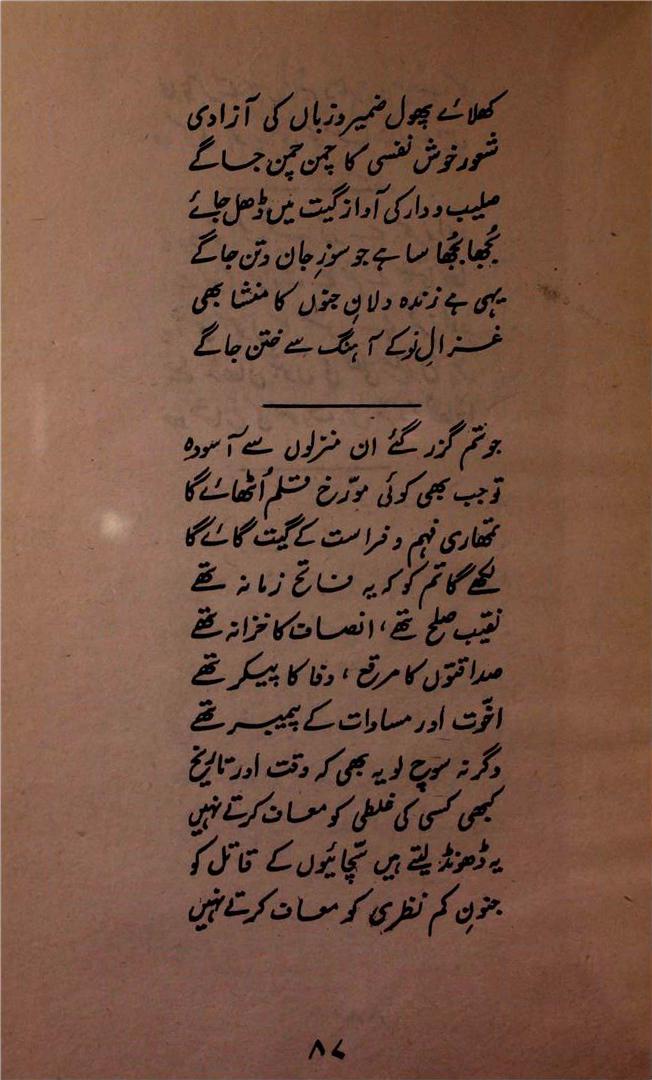 کھلائے پھول ضمیر و زباں کی آزادی
شعورِ خوش نفسی کا چمن چمن جاگے
صلیب و دار کی آواز گیت میں ڈھل جائے
بُجھا بُجھا سا ہے جو سوزِ جان و تن جاگے
یہی ہے زندہ دلانِ جنوں کا منشا بھی
غزالِ نو کے آہنگ سے ختن جاگے
جو تم گزر گئے ان منزلوں سے آسودہ
تو جب بھی کوئی مورّخ قلم اُٹھائے گا
تمھاری فہم و فراست کے گیت گائے گا
لکھے گا تم کو کہ یہ فاتح زمانہ تھے
نقیب صلح تھے، انصاف کا خزانہ تھے
صداقتوں کا مرقع، وفا کا پیکر تھے
اخوّت اور مساوات کے پیمبر تھے
وگرنہ سوچ لو یہ بھی کہ وقت اور تاریخ
کبھی کسی کی غلطی کو معاف کرتے نہیں
یہ ڈھونڈ لیتے ہیں سچّائیوں کے قاتل کو
جنونِ کم نظری کو معاف کرتے نہیں
۸۷